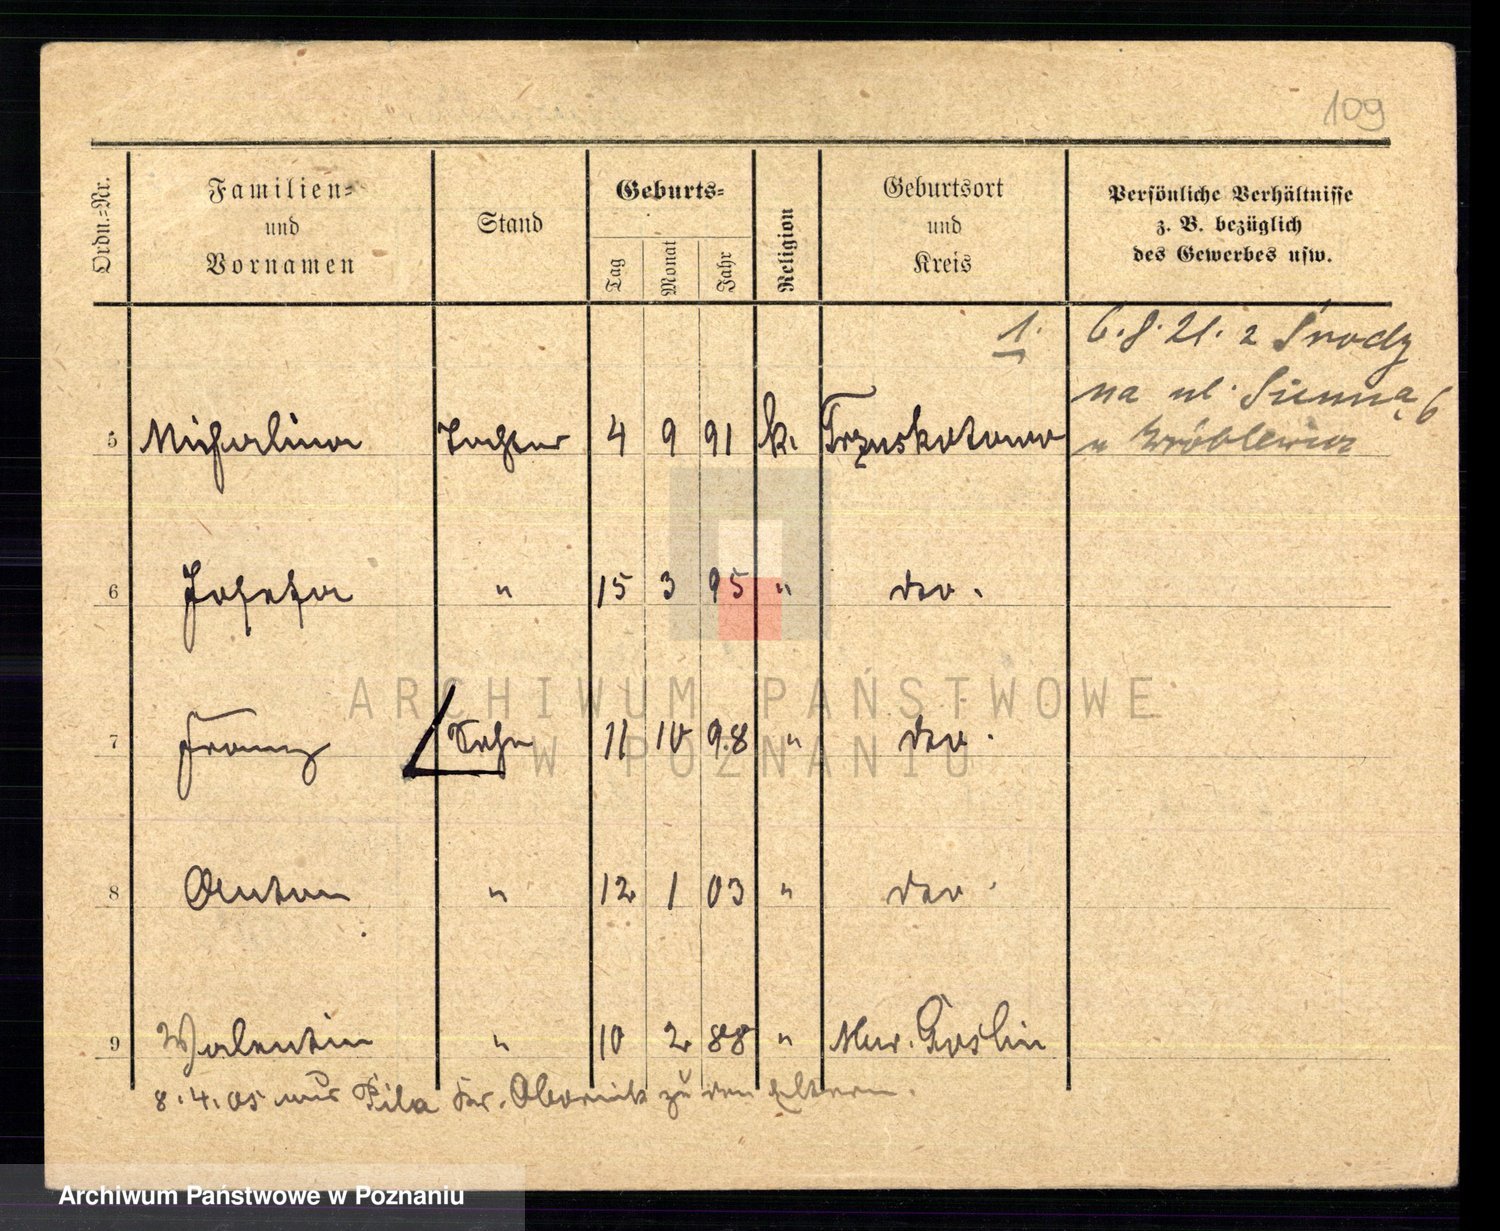 109
Ordn.-Nr. Familien- und Vornamen Stand Geburts- Tag Monat Jahr Religion Geburtsort und Kreis Persönliche Verhältnisse z. B. bezüglich des Gewerbes usw.
1. 6.8.21. z Środy
na ul. Sienna 6
u Wróblewicz
5 Michalina Tochter 4 9 91 k. Trzuskotowo
6 Josefa " 15 3 95 " do.
7 Franz Sohn 11 10 98 " do.
8 Anton " 12 1 03 " do.
9 Walentin " 10 2 88 " Mur. Goslin
8.4.05 aus Pila Kr. Obornik zu den Eltern.
ARCHIWUM PAŃSTWOWE
W POZNANIU
Archiwum Państwowe w Poznaniu